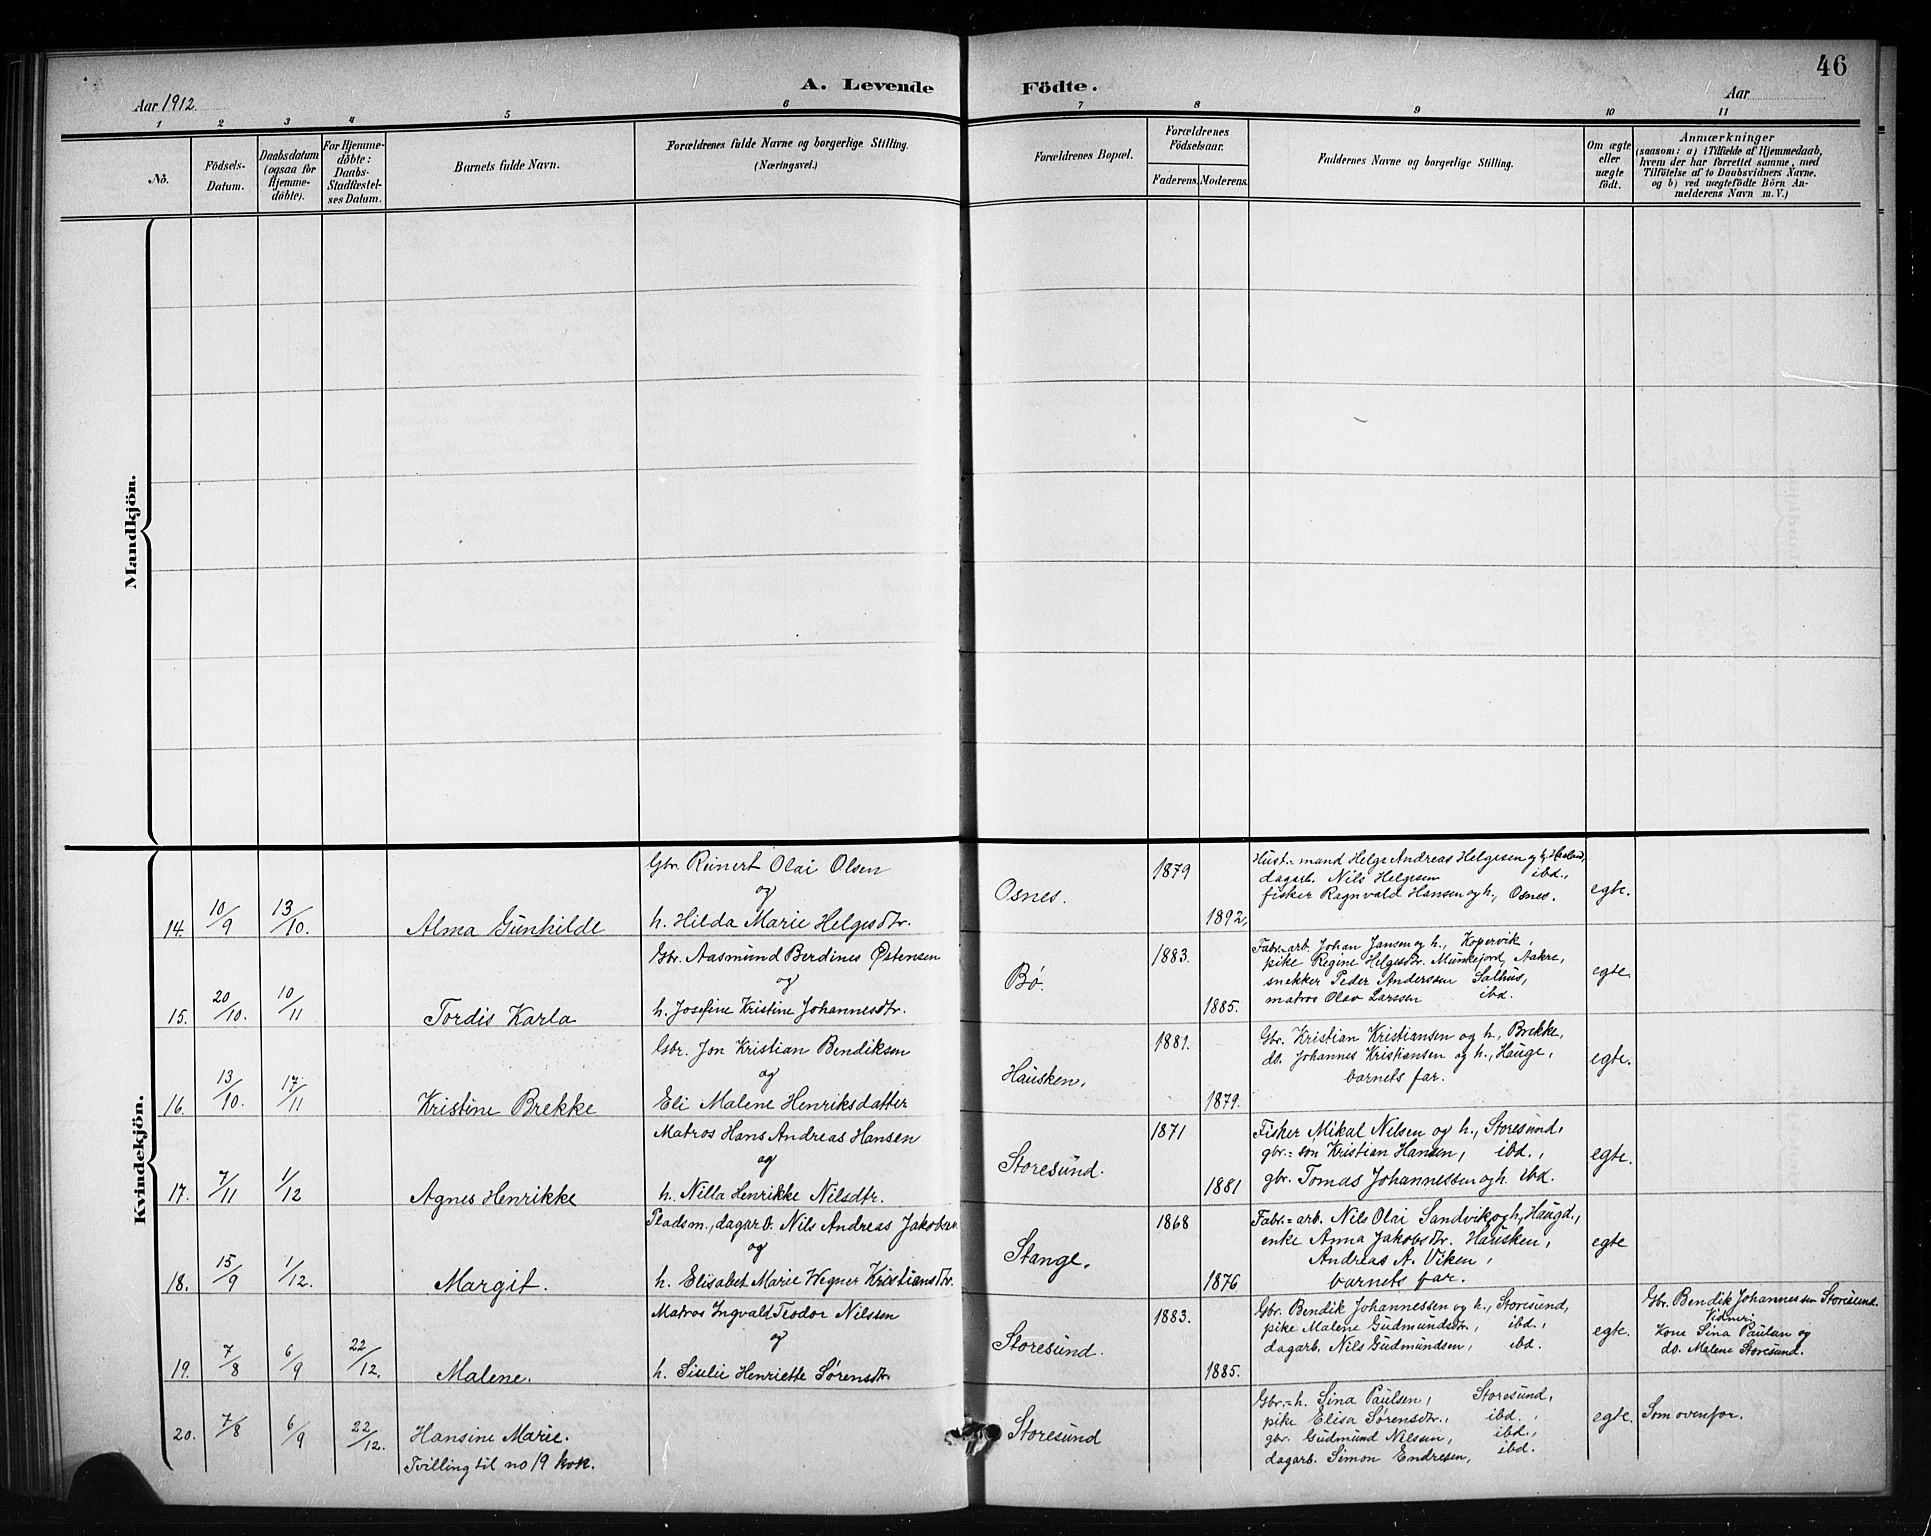 46
Aar 1912.
A. Levende
Födte.
Aar
1 2 3 4 5 6 7 8 9 10 11
No.
Födsels-
Datum.
Daabsdatum
(ogsaa for
Hjemme-
döbte).
For Hjemme-
döbte:
Daabs-
Stadfæstel-
ses Datum.
Barnets fulde Navn.
Forældrenes fulde Navne og borgerlige Stilling.
(Næringsvei.)
Forældrenes Bopæl.
Forældrenes
Födselsaar.
Faderens. Moderens.
Faddernes Navne og borgerlige Stilling.
Om ægte
eller
uægte
födt.
Anmærkninger
(saasom: a) i Tilfælde af Hjemmedaab,
hvem der har forrettet samme, med
Tilföielse af to Daabsvidners Navne,
og b) ved uægtefödte Börn An-
melderens Navn m.V.)
Mandkjön.
Kvindekjön.
14. 10/9 13/10. Alma Gunhilde
Gbr. Reinert Olai Olsen
og
h. Hilda Marie Helgesdtr.
Osnes.
1879
1892,
Hust.=mand Helge Andreas Helgesen og h,
dagarb. Nils Helgesen ibd.,
fisker Ragnvald Hansen og h., Osnes.
egte.
15. 20/10. 10/11 Tordis Karla
Gbr. Aasmund Berdines Østensen
og
h. Josefine Kristine Johannesdtr.
Bø.
1883.
1885.
Fabr.=arb. Johan Jansen og h., Kopervik,
pike Regine Helgesdtr. Munkejord, Aakre,
snekker Peder Anderssen Salhus,
matros Olav Larssen ibd.
egte.
16. 13/10. 17/11 Kristine Brekke
Gbr. Jon Kristian Bendiksen
og
Eli Malene Henriksdatter
Hausken,
1881.
1879.
Gbr. Kristian Kristiansen og h., Brekke,
do. Johannes Kristiansen og h., Hauge,
barnets far.
egte.
17. 7/11 1/12 Agnes Henrikke
Matros Hans Andreas Hansen
og
h. Nilla Henrikke Nilsdtr.
Storesund.
1871
1881
Fisker Mikal Nilsen og h., Storesund,
gbr.=søn Kristian Hansen, ibd.,
gbr. Tomas Johannessen og h. ibd.
egte.
18. 15/9 1/12. Margit.
Pladsm., dagarb. Nils Andreas Jakobsen
og
h. Elisabet Marie Wegner Kristiansdtr.
Stange.
1868
1876
Fabr.=arb. Nils Olai Sandvik og h, Haugd.,
enke Anna Jakobsdtr. Hausken,
Andreas A. Viken,
barnets far.
egte
19. 7/8 6/9 22/12. Malene.
Matros Ingvald Teodor Nilssen
og
h. Siselie Henriette Sørensdtr.
Storesund.
1883.
1885.
Gbr. Bendik Johannessen og h., Storesund,
pike Malene Gudmundsdtr., ibd.,
dagarb. Nils Gudmundsen, ibd.
egte.
Gbr. Bendik Johannessen Storesund.
Vidner:
Kone Sina Paulsen og
do. Malene Storesund.
20. 7/8 6/9 22/12. Hansine Marie.
Tvilling til no 19 kvk.
Storesund
Gbr.=h. Sina Paulsen, Storesund,
pike Elisa Sørensdtr., ibd.,
gbr. Gudmund Nilssen, ibd.,
dagarb. Simon Endresen, ibd.
egte.
Som ovenfor.